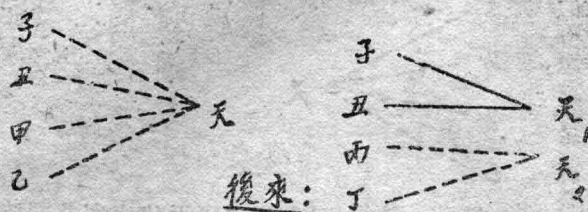 子
丑
甲
乙
天
後來：
子
丑
丙
丁
天₁
天₂